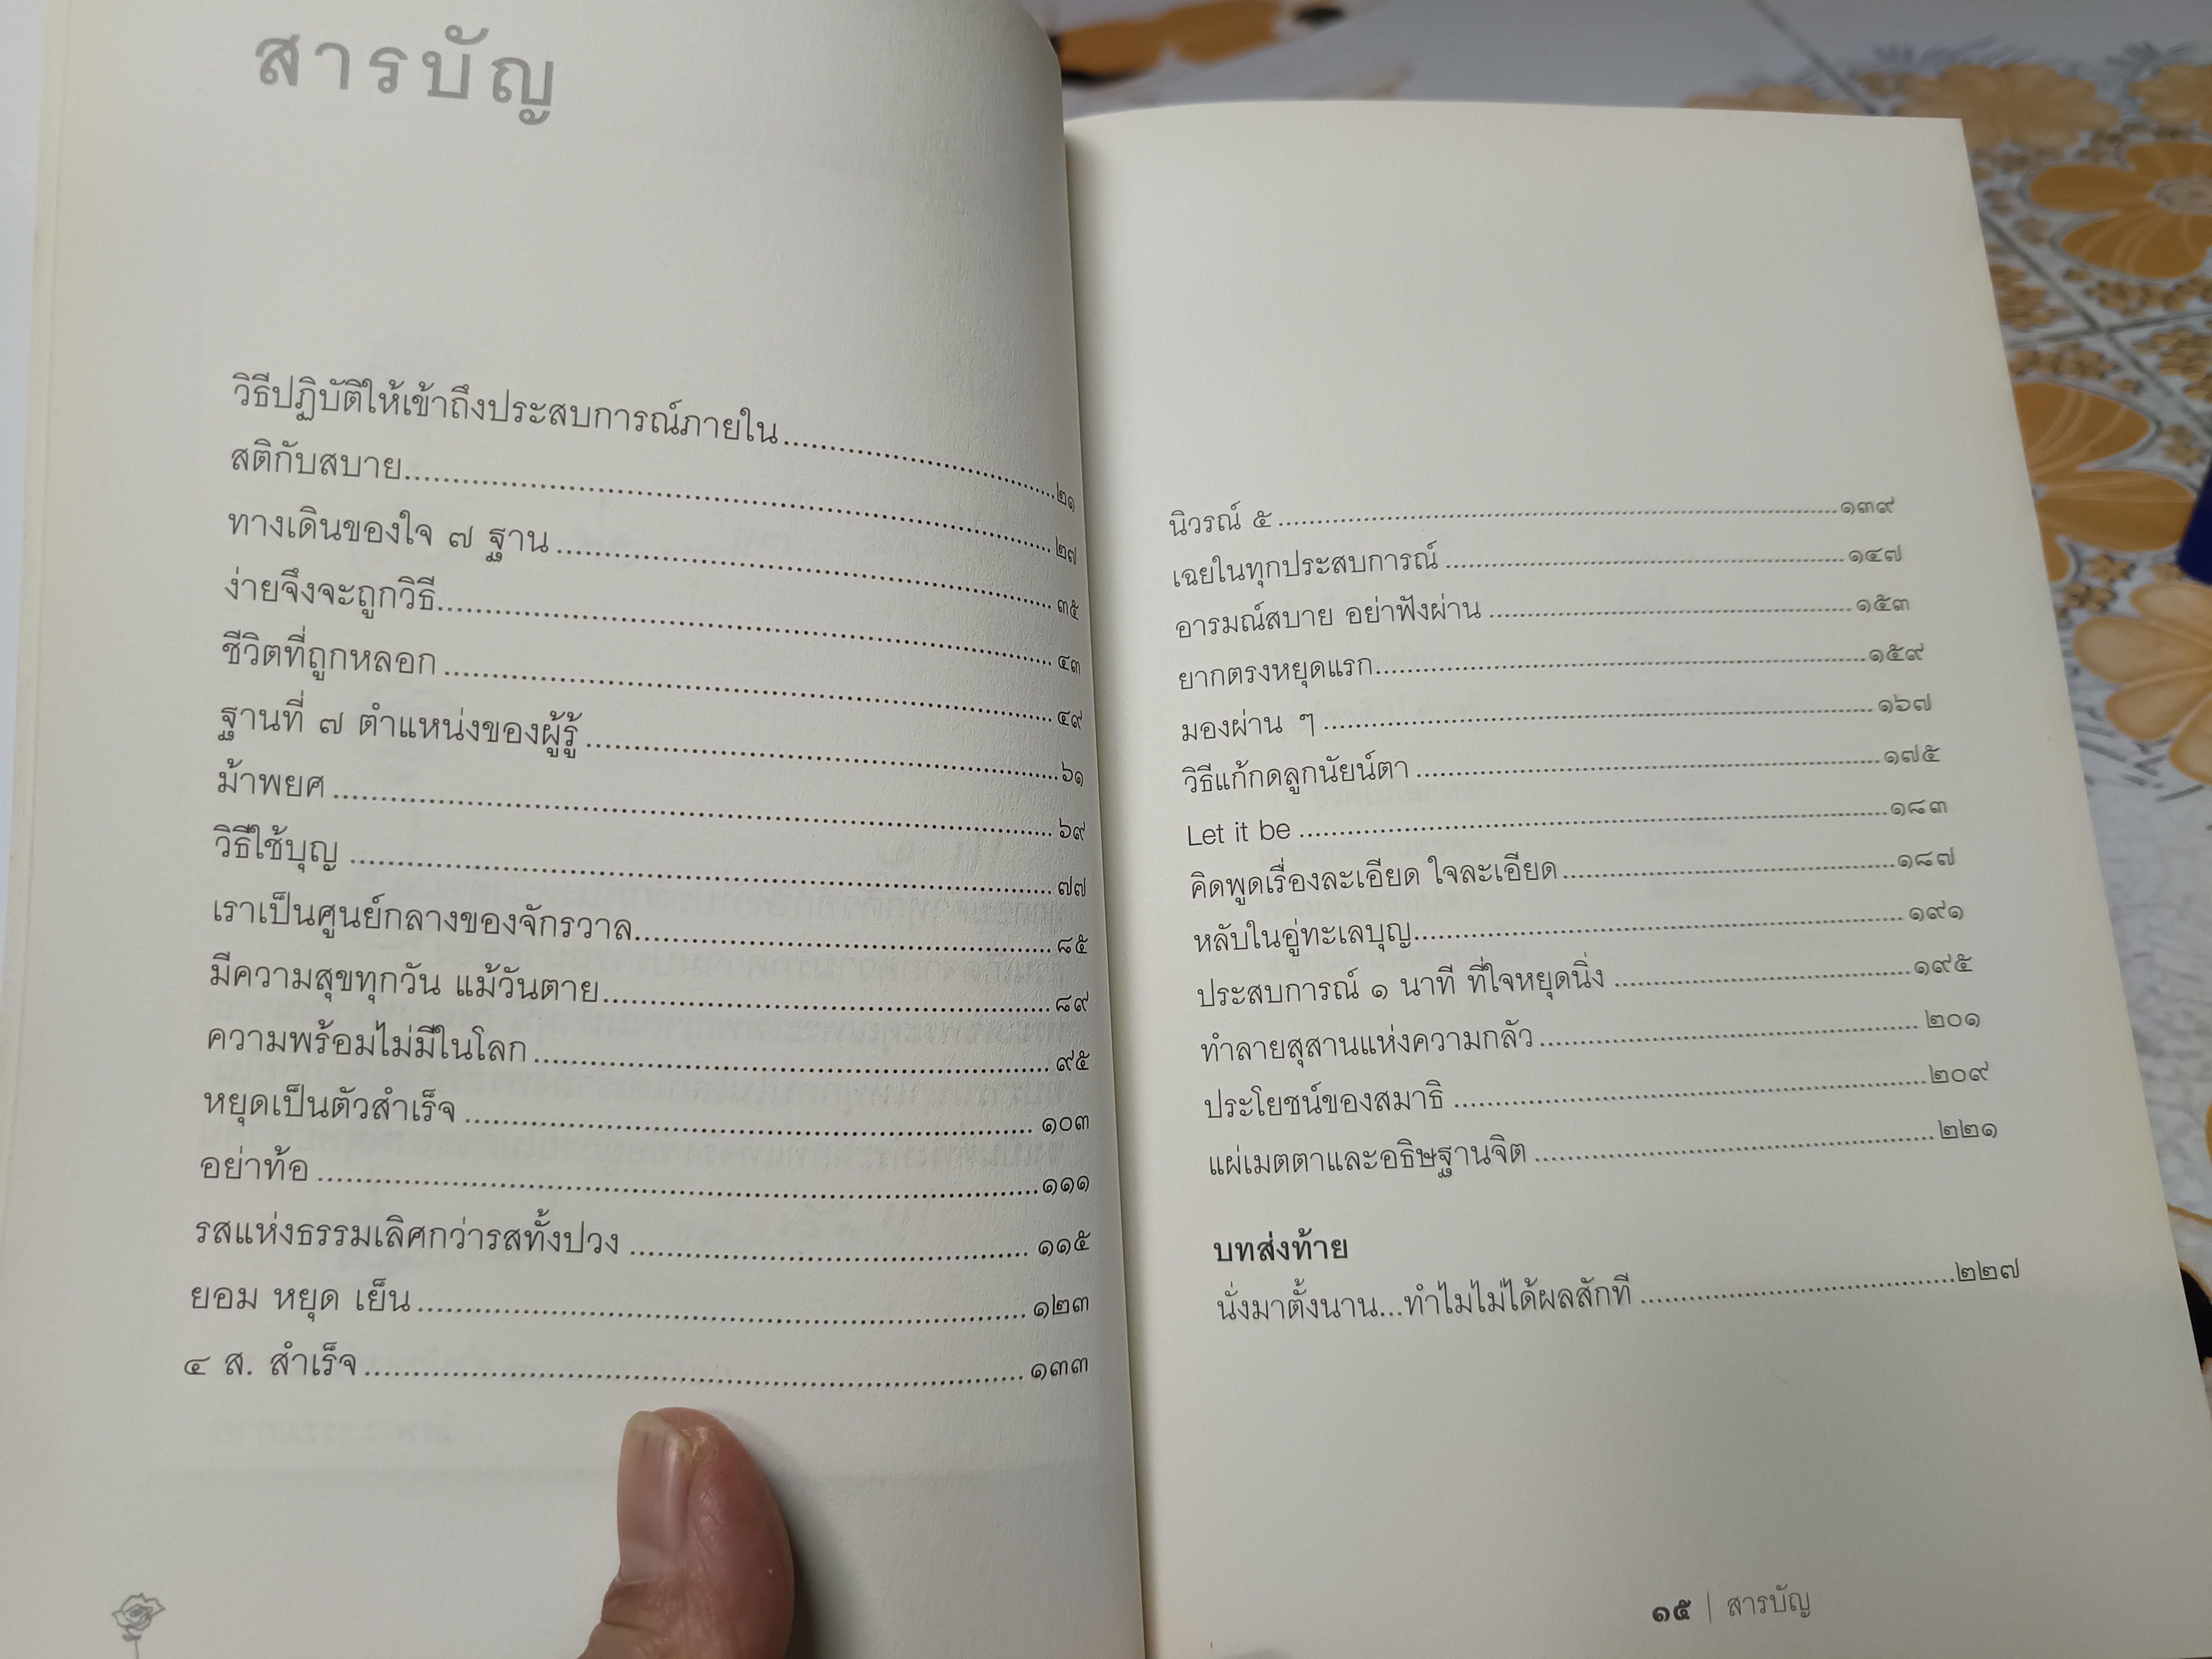 สารบัญ
วิธีปฏิบัติให้เข้าถึงประสบการณ์ภายใน ๒๑
สติกับสบาย ๒๗
ทางเดินของใจ ๗ ฐาน ๓๕
ง่ายจึงจะถูกวิธี ๔๓
ชีวิตที่ถูกหลอก ๔๙
ฐานที่ ๗ ตำแหน่งของผู้รู้ ๖๑
ม้าพยศ ๖๙
วิธีใช้บุญ ๗๗
เราเป็นศูนย์กลางของจักรวาล ๘๕
มีความสุขทุกวัน แม้วันตาย ๘๙
ความพร้อมไม่มีในโลก ๙๕
หยุดเป็นตัวสำเร็จ ๑๐๓
อย่าท้อ ๑๑๑
รสแห่งธรรมเลิศกว่ารสทั้งปวง ๑๑๕
ยอม หยุด เย็น ๑๒๓
๔ ส. สำเร็จ ๑๓๓
นิวรณ์ ๕ ๑๓๙
เฉยในทุกประสบการณ์ ๑๔๗
อารมณ์สบาย อย่าฟังผ่าน ๑๕๓
ยากตรงหยุดแรก ๑๕๙
มองผ่าน ๆ ๑๖๗
วิธีแก้กดลูกนัยน์ตา ๑๗๕
Let it be ๑๘๓
คิดพูดเรื่องละเอียด ใจละเอียด ๑๘๗
หลับในอู่ทะเลบุญ ๑๙๑
ประสบการณ์ ๑ นาที ที่ใจหยุดนิ่ง ๑๙๕
ทำลายสุสานแห่งความกลัว ๒๐๑
ประโยชน์ของสมาธิ ๒๐๙
แผ่เมตตาและอธิษฐานจิต ๒๒๑
บทส่งท้าย
นั่งมาตั้งนาน...ทำไมไม่ได้ผลสักที ๒๒๗
๑๕ | สารบัญ